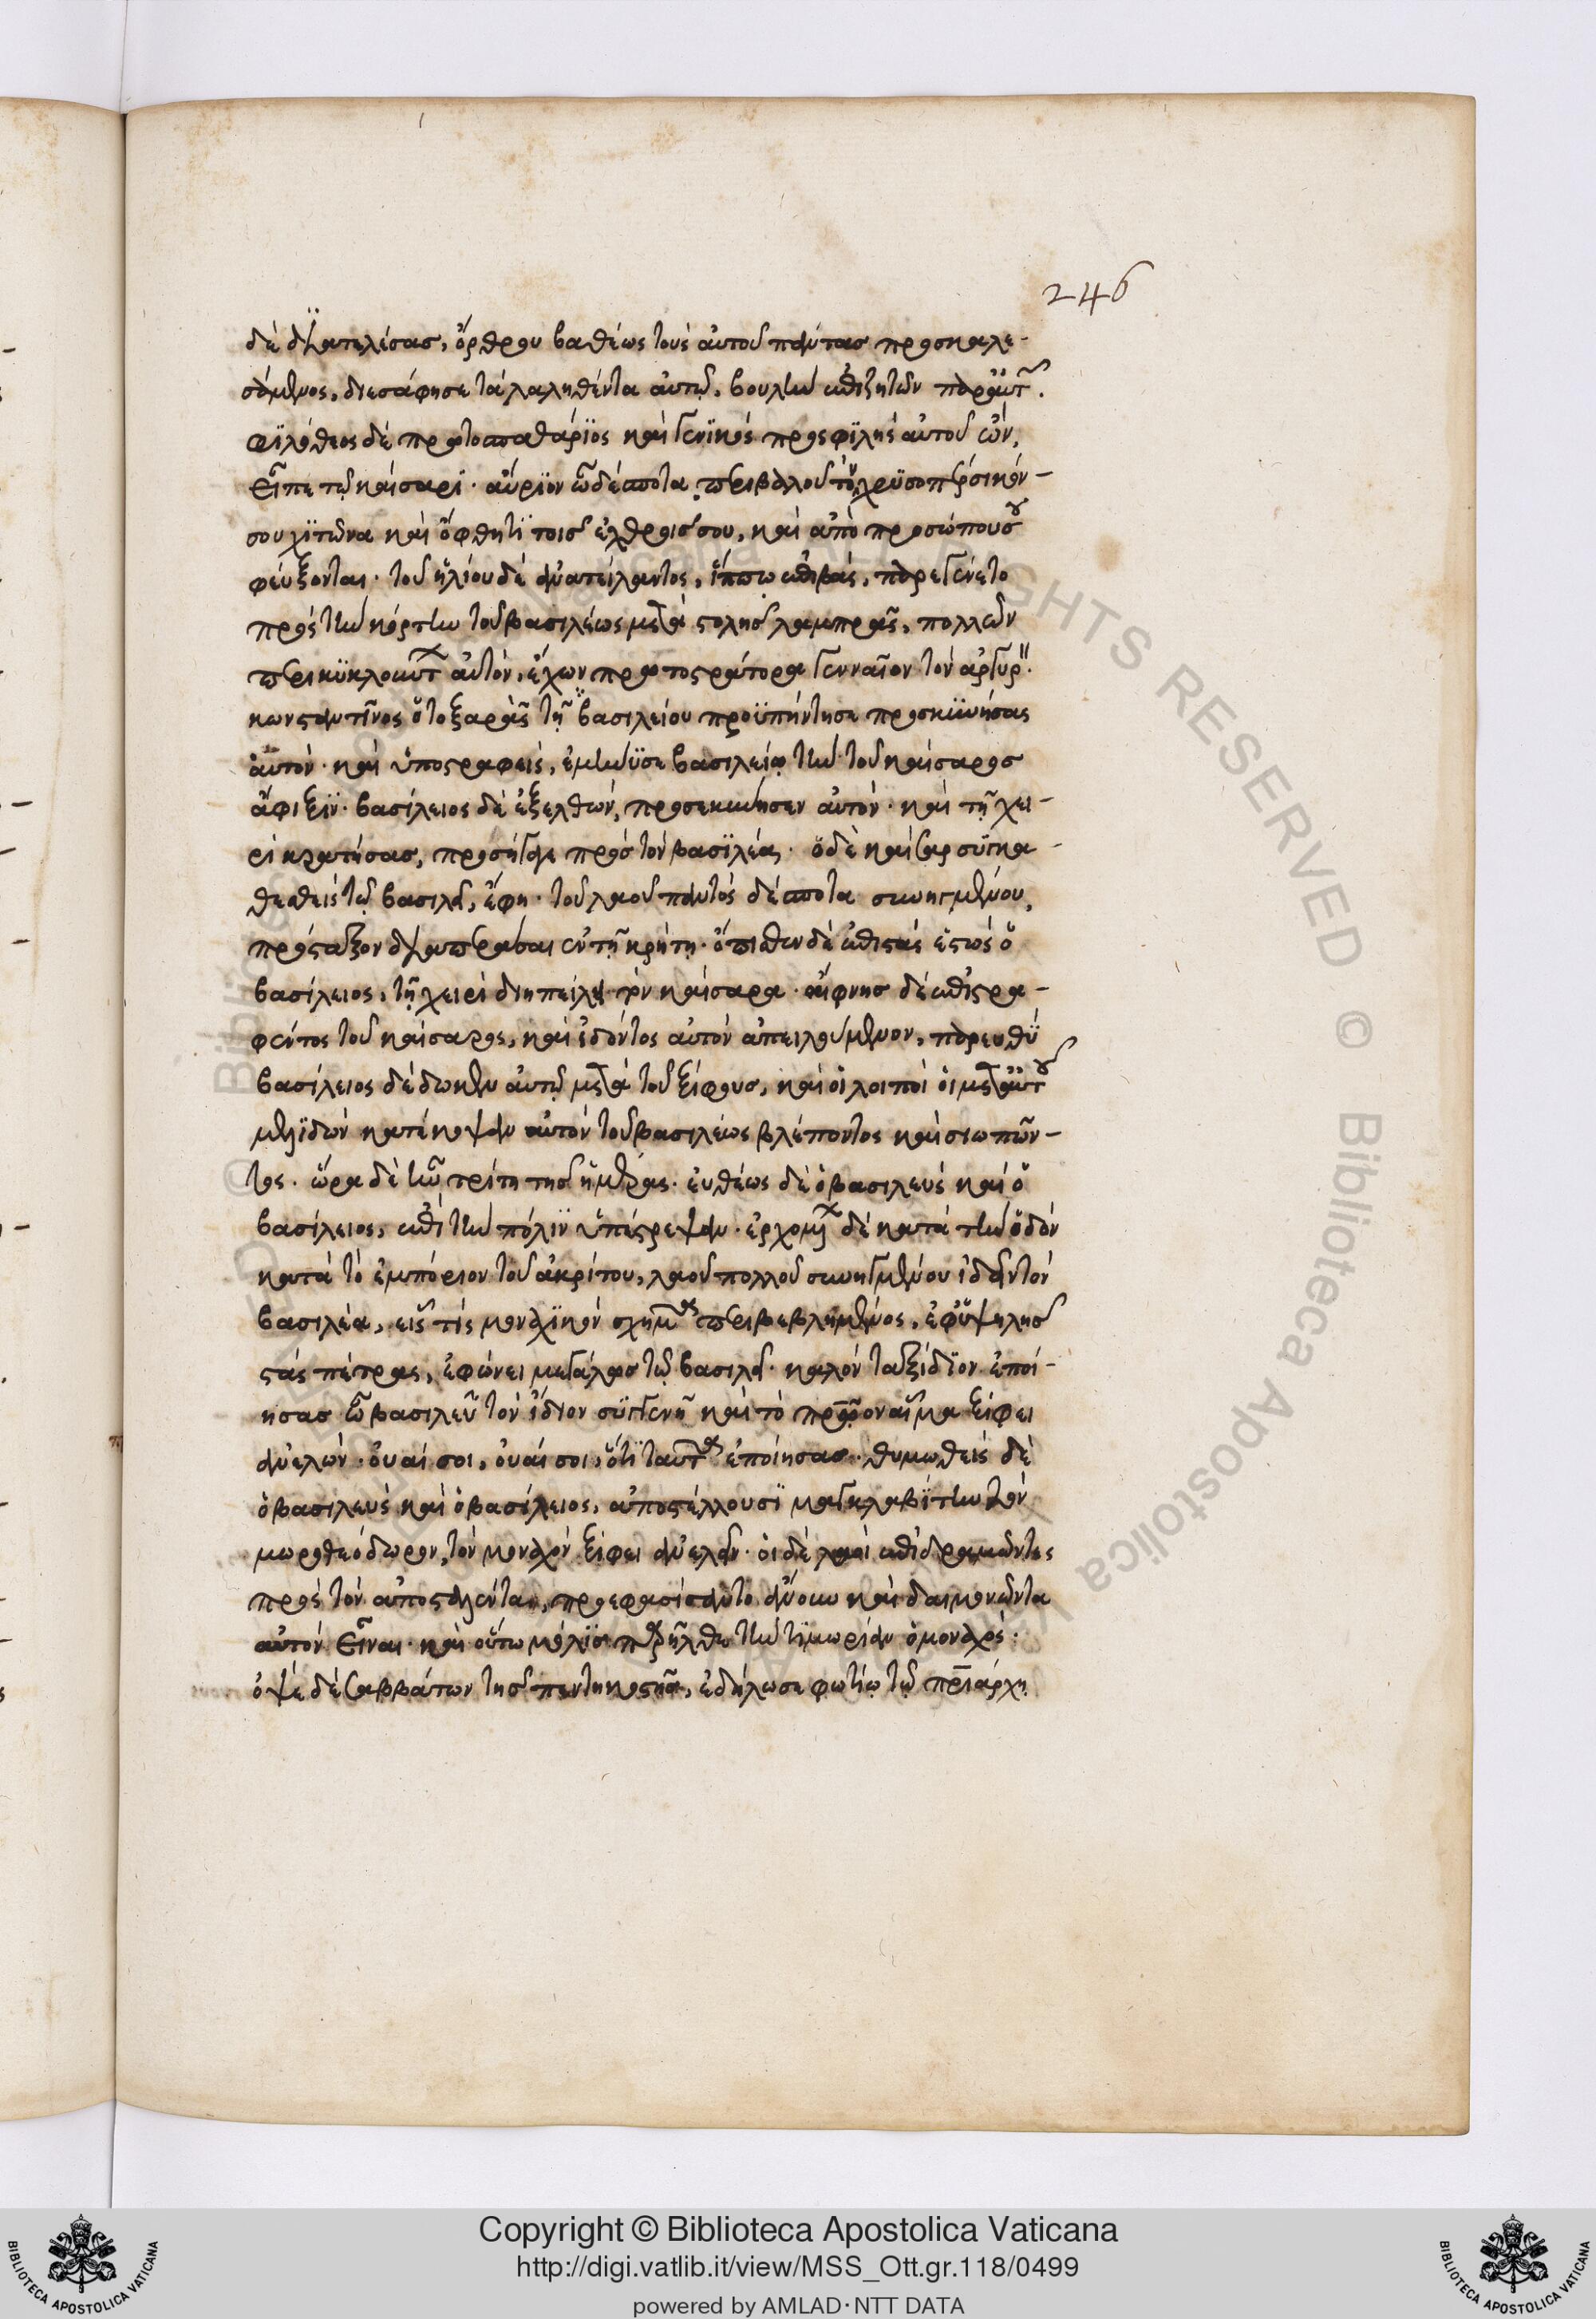 246
δὲ διατελέσας, ὄρθρου βαθέως τοὺς αὐτοῦ πάντας προσκαλε-
σάμενος, διεσάφησε τὰ λαληθέντα αὐτῷ, βουλὴν ἐπιζητῶν παρ' αὐτ.
φϊλόθεος δὲ πρωτοσπαθάρϊος καὶ γενϊκὸς προσφϊλὴς αὐτοῦ ὢν,
εἶπε τῷ καίσαρϊ· αὔρϊον ὦ δέσποτα περιβαλοῦ τὸν χρϋσοπερσικόν-
σου χϊτῶνα καὶ ὄφθητϊ τοῖς ἐχθροῖς σου, καὶ ἀπὸ προσώπου σου
φεύξονται. τοῦ ἡλίου δὲ ἀνατείλαντος, ἵππω ἐπιβὰς, παρεγένετο
πρὸς τὴν κόρτην τοῦ βασιλέως μετὰ στολῆς λαμπρᾶς, πολλῶν
περικϋκλούντ αὐτὸν, ἔχων πρωτοστράτορα γενναῖον τὸν ἀργυρ
κωνσταντῖνος ὁ τοξαρᾶς τῇ βασιλείου προϋπήντησε προσκϋνήσας
αὐτὸν· καὶ ὑποστραφεὶς, ἐμήνϋσε βασιλείῳ τὴν τοῦ καίσαρος
ἄφιξϊν. βασίλειος δὲ ἐξελθὼν, προσεκύνησεν αὐτὸν· καὶ τῇ χει-
ρὶ κρατήσας, προσήγαγε πρὸς τὸν βασϊλέα. ὁ δὲ καίσαρ συγκα-
θεσθεὶς τῷ βασιλεῖ, ἔφη. τοῦ λαοῦ παντὸς δέσποτα συνηγμένου,
πρόσταξον διαπεράσαι ἐν τῇ κρήτῃ. ὄπισθεν δὲ ἐπιστὰς ἑστὼς ὁ
βασίλειος, τῇ χειρὶ διηπείλει τὸν καίσαρα. αἴφνης δὲ ἐπιστρα-
φέντος τοῦ καίσαρος, καὶ ἰδόντος αὐτὸν ἀπειλούμενον, παρευθὺ
βασίλειος δέδωκεν αὐτῷ μετὰ τοῦ ξίφους, καὶ οἱ λοιποὶ οἱ μετ' αὐτοῦ
μεληϊδὸν κατέκοψαν αὐτὸν τοῦ βασιλέως βλέποντος καὶ σιωπῶν-
τος. ὥρα δὲ ἦν τρίτη τῆς ἡμέρας. εὐθέως δὲ ὁ βασιλεὺς καὶ ὁ
βασίλειος, ἐπὶ τὴν πόλϊν ὑπέστρεψαν. ἐρχομ δὲ κατὰ τὴν ὁδὸν
κατὰ τὸ ἐμπόριον τοῦ ἀκρίτου, λαοῦ πολλοῦ συνηγμένου ἰδεῖν τὸν
βασιλέα, εἷς τίς μοναχϊκὸν σχῆμα περιβεβλημένος, ἐφ' ὑψηλῆς
στὰς πέτρας, ἐφώνει μεγάλως τῷ βασιλεῖ. καλὸν ταξίδϊον ἐποί-
ησας ὦ βασιλεῦ τὸν ἴδιον συγγενῆ καὶ τὸ πρῷον αἷμα ξίφει
ἀνελών. οὐαί σοι, οὐαί σοι, ὅτϊ ταῦτα ἐποίησας. θυμωθεὶς δὲ
ὁ βασιλεὺς καὶ ὁ βασίλειος, ἀποστέλλουσϊ μαγκλαβϊτην τὸν
μωροθεόδωρον, τὸν μοναχὸν ξίφει ἀνελεῖν. οἱ δὲ λαοὶ ἐπιδραμόντες
πρὸς τὸν ἀποσταλέντα, προεφασίσαντο ἄνουν καὶ δαιμονῶντα
αὐτὸν εἶναι. καὶ οὕτω μόλϊς παρῆλθε τὴν τϊμωρίαν ὁ μοναχός.
ὀψὲ δὲ σαββάτων τῆς πεντηκοστῆς, ἐδήλωσε φωτίῳ τῷ πριάρχῃ
Copyright © Biblioteca Apostolica Vaticana
http://digi.vatlib.it/view/MSS_Ott.gr.118/0499
powered by AMLAD·NTT DATA
BIBLIOTECA APOSTOLICA VATICANA
BIBLIOTECA APOSTOLICA VATICANA